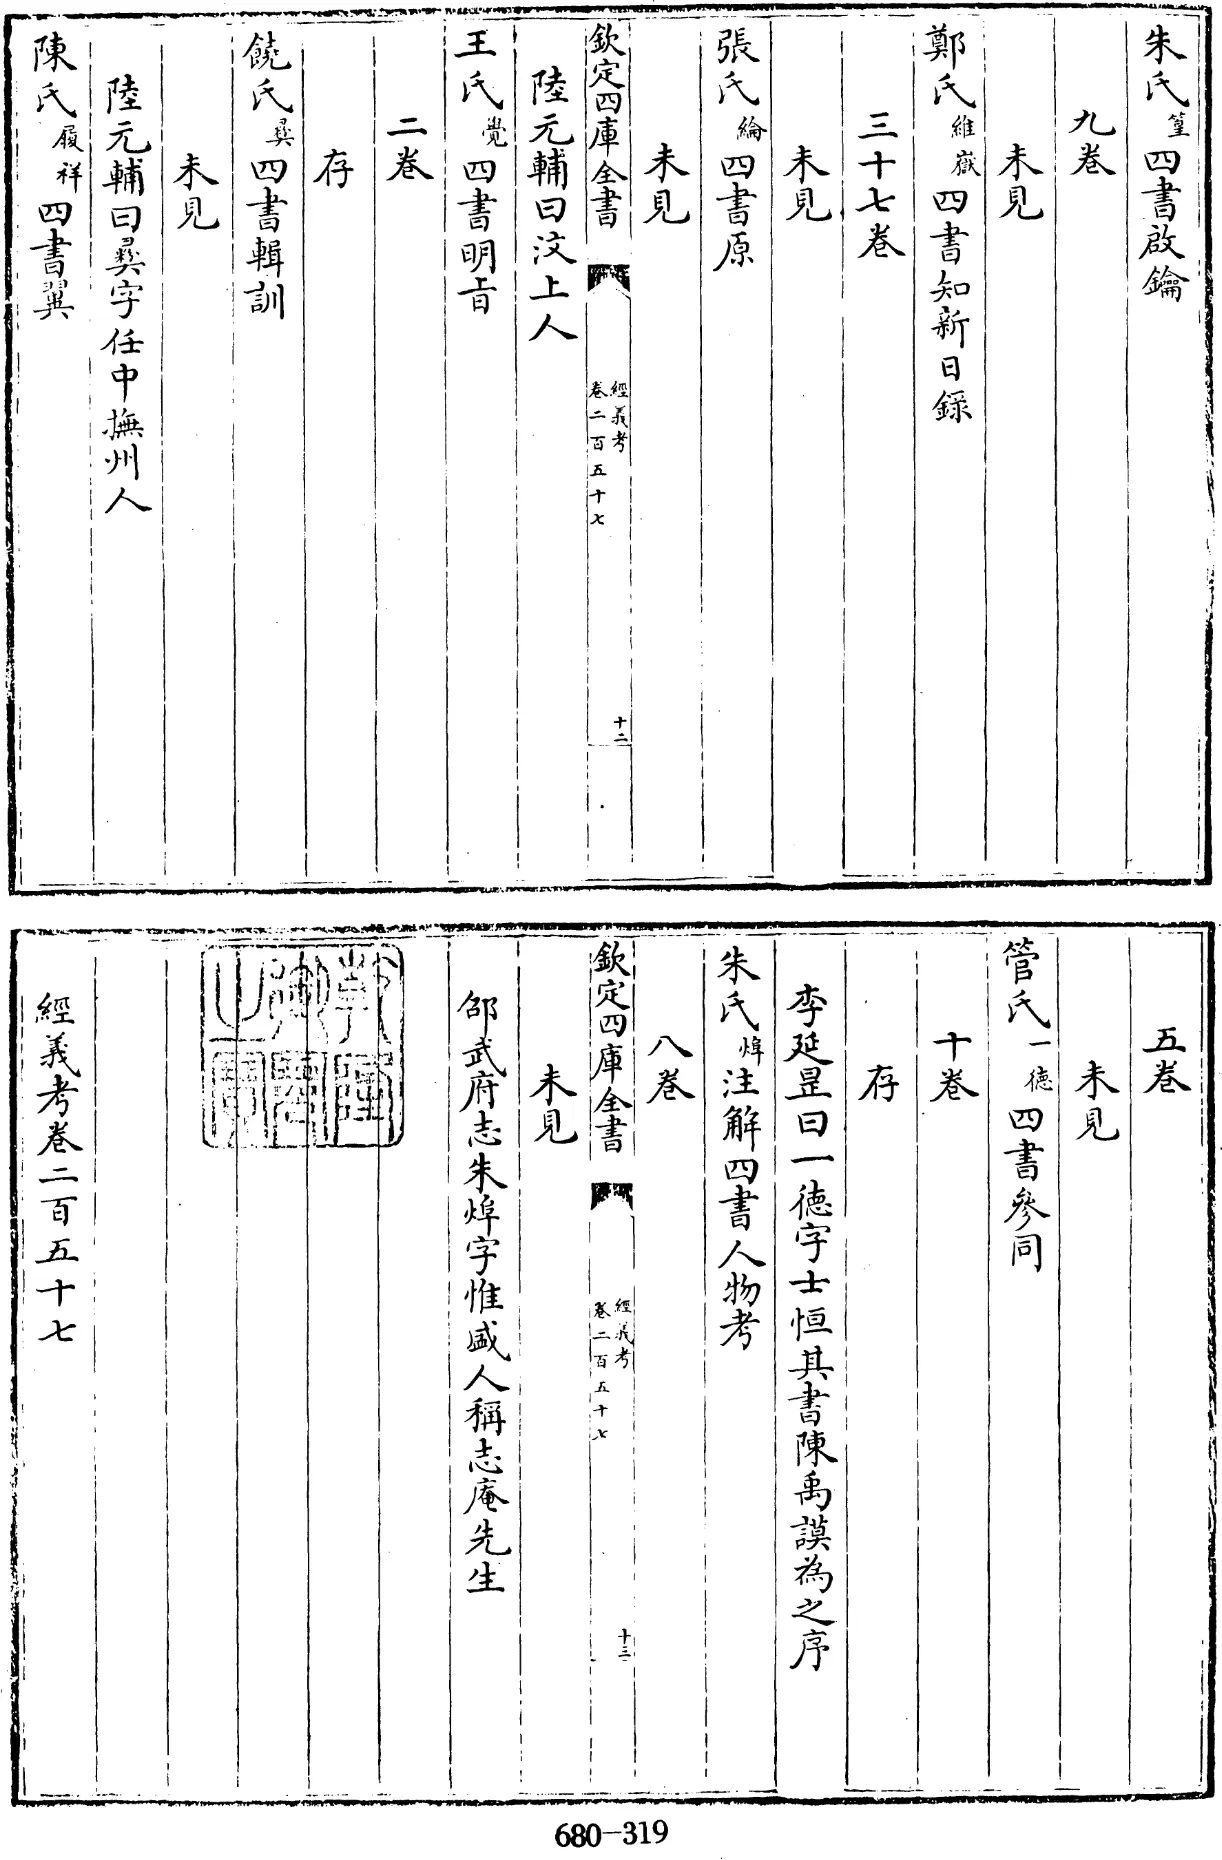 朱氏篁四書啟鑰
九卷
未見
鄭氏維嶽四書知新日録
三十七卷
未見
張氏綸四書原
未見
欽定四庫全書
經義考
卷二百五十七
十二
陸元輔曰汶上人
王氏覺四書明旨
二卷
存
饒氏彛四書輯訓
未見
陸元輔曰彛字任中撫州人
陳氏履祥四書翼
五卷
未見
管氏一徳四書參同
十卷
存
李延昰曰一徳字士恒其書陳禹謨為之序
朱氏焯注解四書人物考
八卷
欽定四庫全書
經義考
卷二百五十七
十三
未見
邵武府志朱焯字惟盛人稱志庵先生
經義考卷二百五十七
680-319